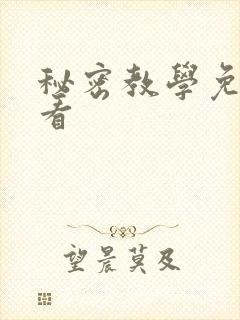 秘密教學免
看
望晨莫及